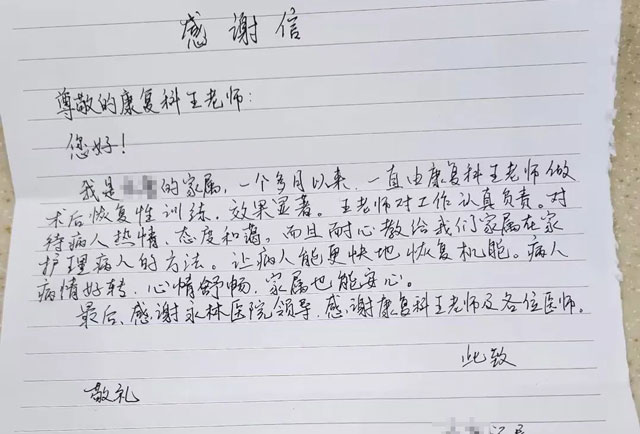 感谢信
尊敬的康复科王老师：
您好！
我是 的家属，一个多月以来，一直由康复科王老师做
术后恢复性训练，效果显著。王老师对工作认真负责。对
待病人热情、态度和蔼，而且耐心教给我们家属在家
护理病人的方法。让病人能更快地恢复机能。病人
病情好转，心情舒畅，家属也能安心。
最后、感谢永林医院领导，感谢康复科王老师及各位医师。
此致
敬礼